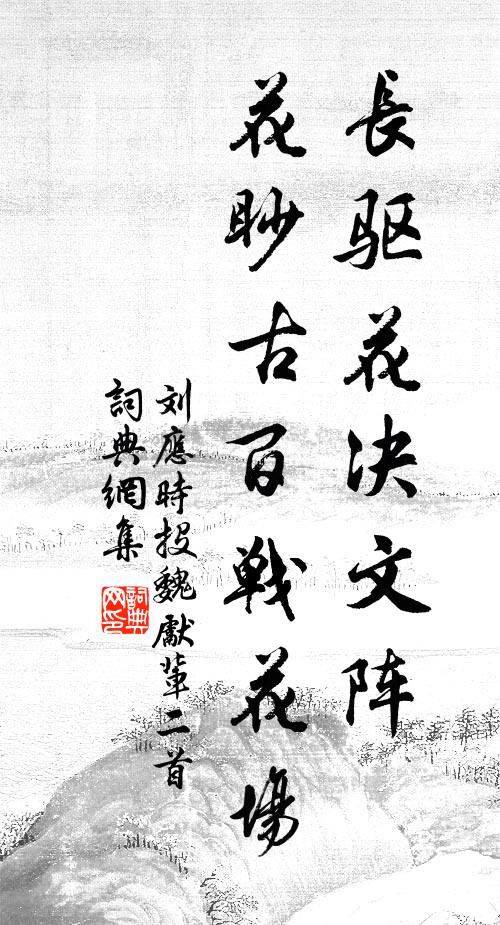 長驱花决文阵
花眇古百戦花場
刘應時投魏獻輩二首
詞典網集
詞典网印